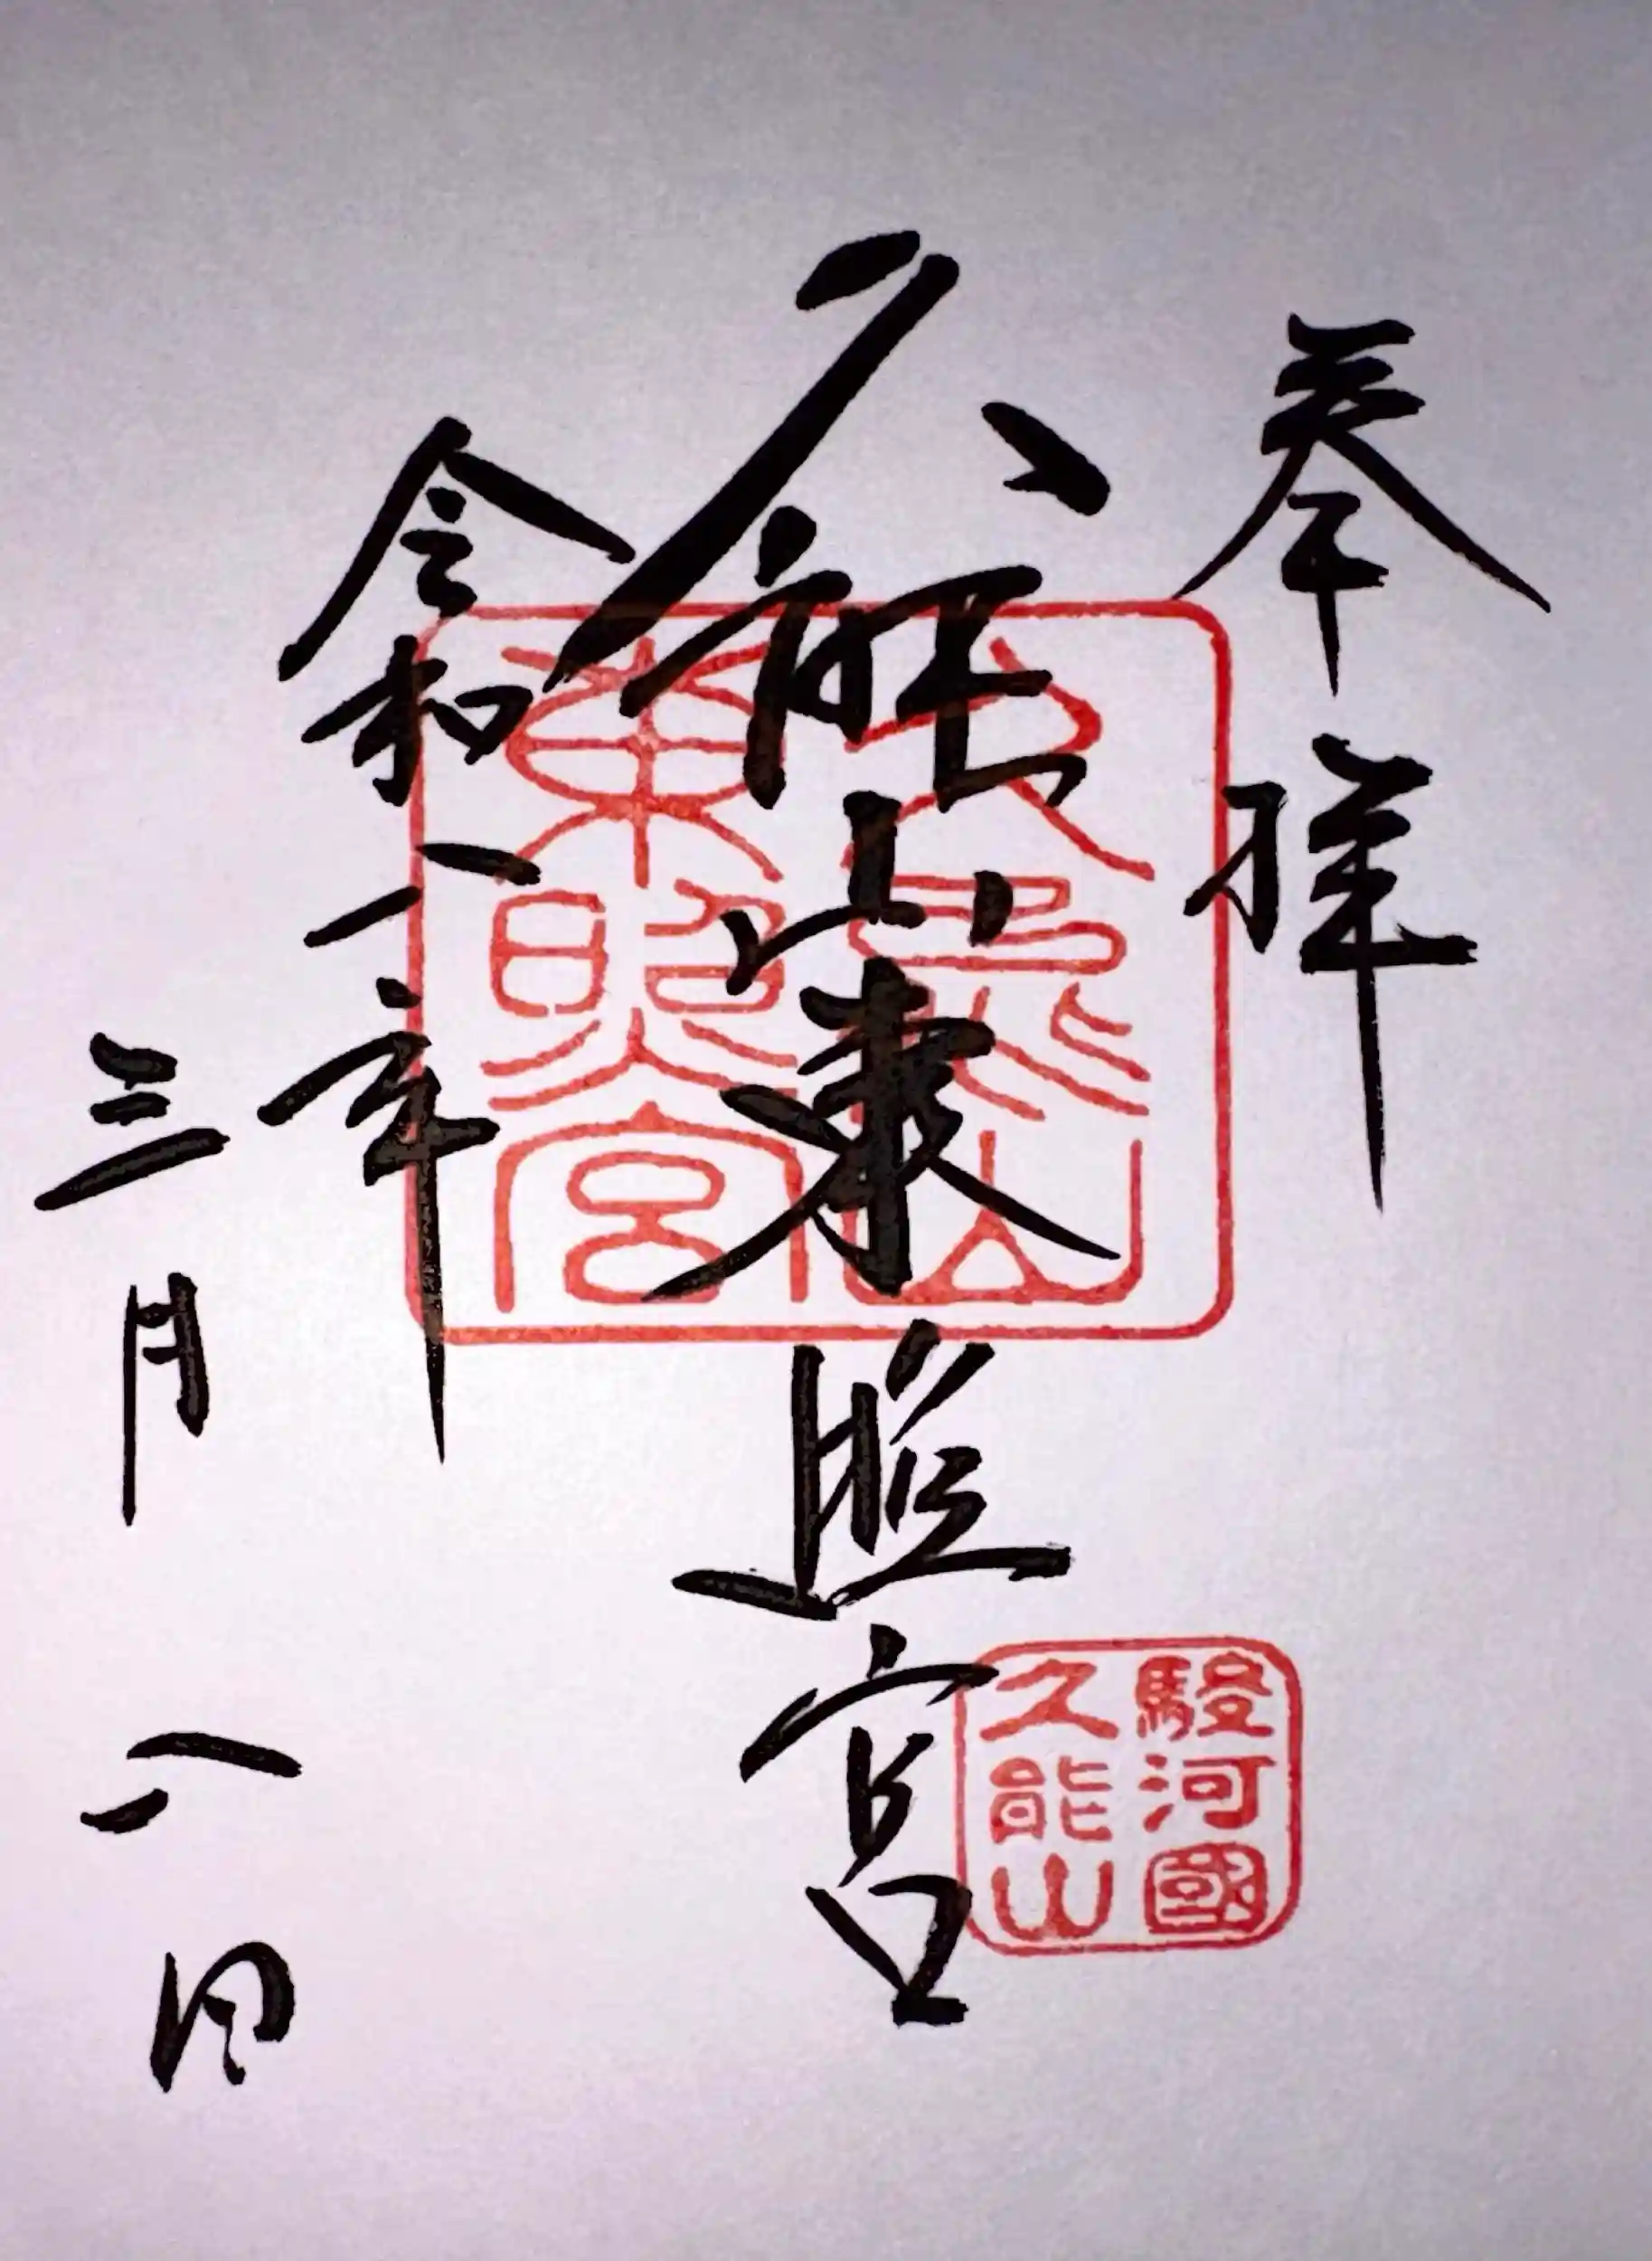 奉拝
久能山東照宮
令和二年
三月八日
久能山
東照宮
駿河國
久能山